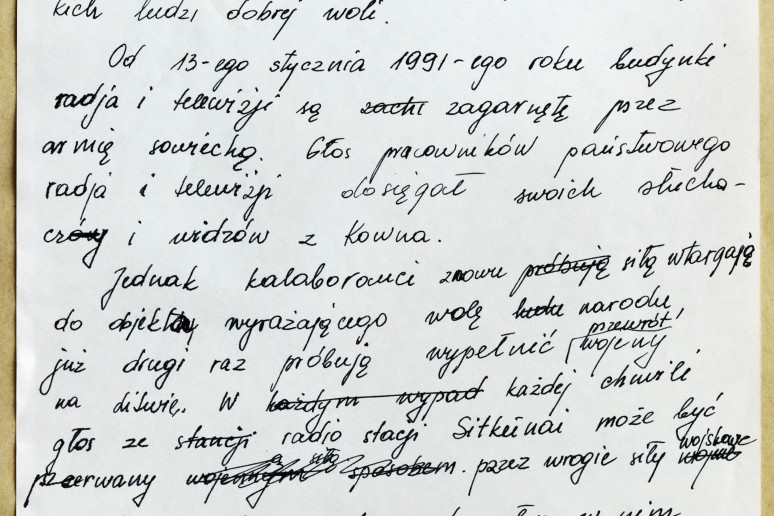 kich ludzi dobrej woli.
Od 13-ego stycznia 1991-ego roku budynki
radja i telewizji są zachi zagarnętę przez
armię sowiecką. Głos pracowników państwowego
radja i telewizji dosięgał swoich słucha-
czów i widzów z Kowna.
Jednak kalaboranci znowu próbują siłą wtargają
do objektu wyrażającego wolę ludu narodu,
przewrót
już drugi raz próbują wypełnić wojeny
na Litwię. W każdym wypad każdej chwili
głos ze stancji radio stacji Sitkūnai może być
a siłą wojskowe
przerwany wojennym sposobem. przez wrogie siły